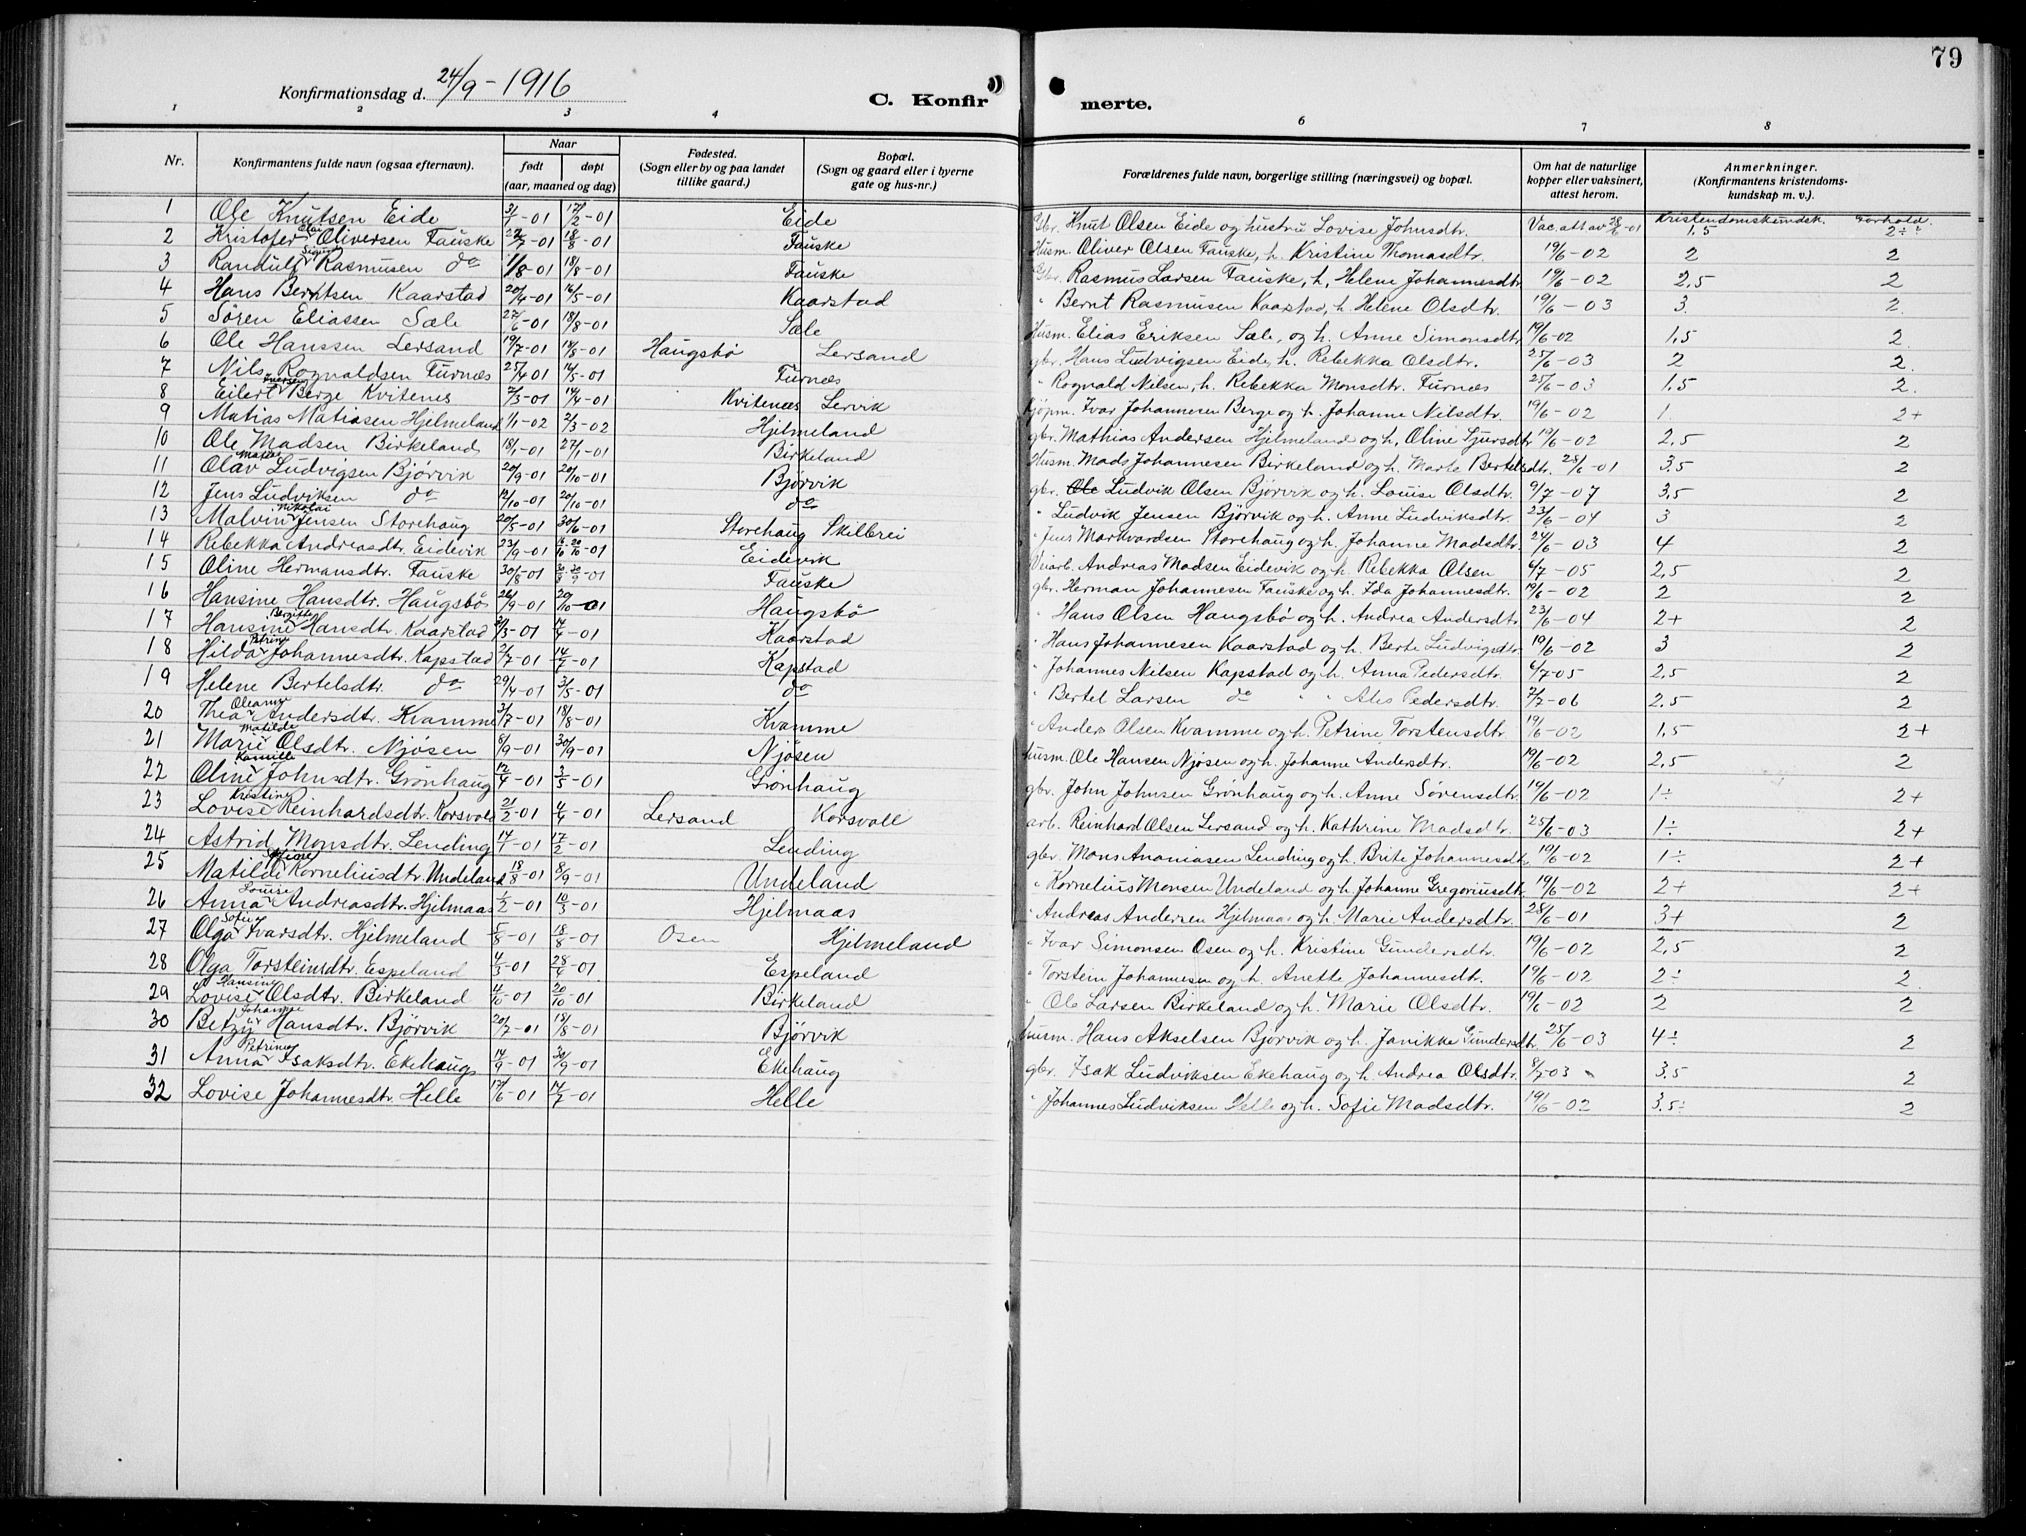 79
Konfirmationsdag d. 24/9 - 1916
C. Konfirmerte.
1 2 3 4 6 7 8
Nr. | Konfirmantens fulde navn (ogsaa efternavn). | Naar født døpt (aar, maaned og dag) | Fødested. (Sogn eller by og paa landet tillike gaard.) | Bopæl. (Sogn og gaard eller i byerne gate og hus-nr.) | Forældrenes fulde navn, borgerlige stilling (næringsvei) og bopæl. | Om hat de naturlige kopper eller vaksinert, attest herom. | Anmerkninger. (Konfirmantens kristendomskundskap m. v.).
Kristendomskundsk. Forhold.
1 Ole Knutsen Eide 31/1-01 17/2-01 Eide Gbr. Knut Olsen Eide og hustru Lovise Johnsdtr. Vac. att av 28/6-01 1,5 2÷
2 Kristofer Olai Oliversen Fauske 22/7-01 18/8-01 Fauske Husm. Oliver Olsen Fauske, h. Kristine Thomasdtr. 19/6-02 2 2
3 Randulf Sigurd Rasmusen do 1/8-01 18/8-01 Fauske Gbr. Rasmus Larsen Fauske, h, Helene Johannesdtr 19/6-02 2,5 2
4 Hans Berntsen Kaarstad 20/4-01 16/5-01 Kaarstad " Bernt Rasmusen Kaarstad, h Helene Olsdtr. 19/6-03 3. 2.
5 Søren Eliassen Sæle 27/6-01 18/8-01 Sæle Husm. Elias Eriksen Sæle, og h. Anne Simonsdtr 19/6-02 1,5 2.
6 Ole Hanssen Lersand 19/7-01 14/8-01 Haugsbø Lersand gbr. Hans Ludvigsen Eide, h. Rebekka Olsdtr. 25/6-03 2 2.
7 Nils Rognaldsen Furnæs 25/4 01 14/5-01 Furnæs " Rognald Nilsen, h. Rebekka Monsdtr. Furnæs 25/6-03 1,5 2.
8 Eilert Iversen Berge Kvitenes 7/3-01 14/4-01 Kvitenæs Lervik Kjøpm. Ivar Johannesen Berge og h. Johanne Nilsdtr. 19/6-02 1. 2+
9 Matias Matiasen Hjelmeland 1/1-02 2/3-02 Hjelmeland gbr. Mathias Andersen Hjelmeland og h, Oline Sjursdtr 19/6-02 2,5 2
10 Ole Madsen Birkeland 18/1-01 27/1-01 Birkeland Husm. Mads Johannesen Birkeland og h. Marte Bertelsdtr. 28/6-01 3,5 2
11 Olav Matias Ludvigsen Bjørvik 20/9-01 20/10-01 Bjørvik gbr. Ole Ludvik Olsen Bjørvik og h. Louise Olsdtr. 9/7-07 3,5 2
12 Jens Ludviksen do 12/10-01 20/10-01 do " Ludvik Jensen Bjørvik og h. Anne Ludviksdtr. 23/6-04 3 2
13 Malvin Nikolai Jensen Storehaug 20/5-01 30/6-01 Storehaug Skilbrei " Jens Markvardsen Storehaug og h. Johanne Madsdtr. 24/6-03 4 2
14 Rebekka Andreasdtr. Eidevik 23/9-01 20/10-01 Eidevik Veiarb. Andreas Madsen Eidevik og h. Rebekka Olsen 6/7-05 2,5 2
15 Oline Hermansdtr. Fauske 30/8-01 -01 Fauske gbr. Herman Johannesen Fauske og h. Ida Johannesdtr. 19/6-02 2 2
16 Hansine Hansdtr. Haugsbø 26/9-01 20/10-01 Haugsbø " Hans Olsen Haugsbø og h. Andrea Andersdtr. 23/6-04 2+ 2
17 Hansine Bergitte Hansdtr. Kaarstad 21/3-01 14/4-01 Kaarstad " Hans Johannesen Kaarstad og h. Berte Ludvigsdtr 19/6-02 3 2
18 Hilda Petrine Johannesdtr. Kapstad 2/7-01 14/7-01 Kapstad " Johannes Nilsen Kapstad og h. Anna Pedersdtr. 6/7-05 2,5 2
19 Helene Bertelsdtr. do 29/4-01 3/5-01 do " Bertel Larsen do " " Ales Pedersdtr. 7/7-06 2,5 2
20 Thea Oleanna Andersdtr. Kvamme 3/7-01 18/8-01 Kvamme " Anders Olsen Kvamme og h. Petrine Torstensdtr. 19/6-02 1,5 2+
21 Marie Matilde Olsdtr. Njøsen 8/9-01 30/9-01 Njøsen husm. Ole Hansen Njøsen og h. Johanne Andersdtr. 19/6-02 2,5 2
22 Oline Kamille Johnsdtr. Grønhaug 12/4-01 3/5-01 Grønhaug gbr. John Johnsen Grønhaug og h. Anne Sørensdtr. 19/6-02 1÷ 2+
23 Lovise Kristine Reinhardsdtr. Korsvold 21/2-01 4/4-01 Lersand Korsvoll arb. Reinhard Olsen Lersand og h. Kathrine Madsdtr. 25/6-03 1÷ 2+
24 Astrid Monsdtr. Lending 14/1-01 17/2-01 Lending gbr. Mons Ananiasen Lending og h. Brite Johannesdtr. 19/6-02 1÷ 2+
25 Matilde Korneliusdtr. Undeland 18/8-01 8/9-01 Undeland " Kornelius Monsen Undeland og h. Johanne Gregoriusdtr. 19/6-02 2+ 2+
26 Anna Louise Andreasdtr. Hjelmaas 1/2-01 10/3-01 Hjelmaas " Andreas Andersen Hjelmaas og h. Marie Andersdtr. 28/6-01 3+ 2
27 Olga Sofie Ivarsdtr. Hjelmeland 5/8-01 18/8-01 Osen Hjelmeland " Ivar Simonsen Osen og h. Kristine Gundersdtr. 19/6-02 2,5 2
28 Olga Torsteinsdtr. Espeland 4/3-01 28/4-01 Espeland " Torstein Johannesen og h. Anette Johannesdtr. 19/6-02 2÷ 2.
29 Lovise Hansine Olsdtr. Birkeland 4/10-01 20/10-01 Birkeland " Ole Larsen Birkeland og h. Marie Olsdtr. 19/6-02 2 2
30 Betzy Johanne Hansdtr. Bjørvik 20/7-01 18/8-01 Bjørvik husm. Hans Akselsen Bjørvik og h. Janikke Gundersdtr. 25/6-03 4÷ 2
31 Anna Petrine Isaksdtr. Ekehaug 14/9-01 30/9-01 Ekehaug gbr. Isak Ludviksen Ekehaug og h. Andrea Olsdtr. 8/7-03 3,5 2
32 Lovise Johannesdtr. Helle 17/6-01 14/7-01 Helle " Johannes Ludviksen Helle og h. Sofie Madsdtr. 19/6-02 3,5÷ 2